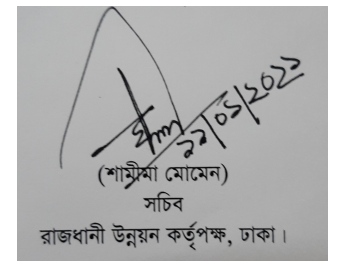 ২২/০৫/২০২২
(শামীমা মোমেন)
সচিব
রাজধানী উন্নয়ন কর্তৃপক্ষ, ঢাকা।